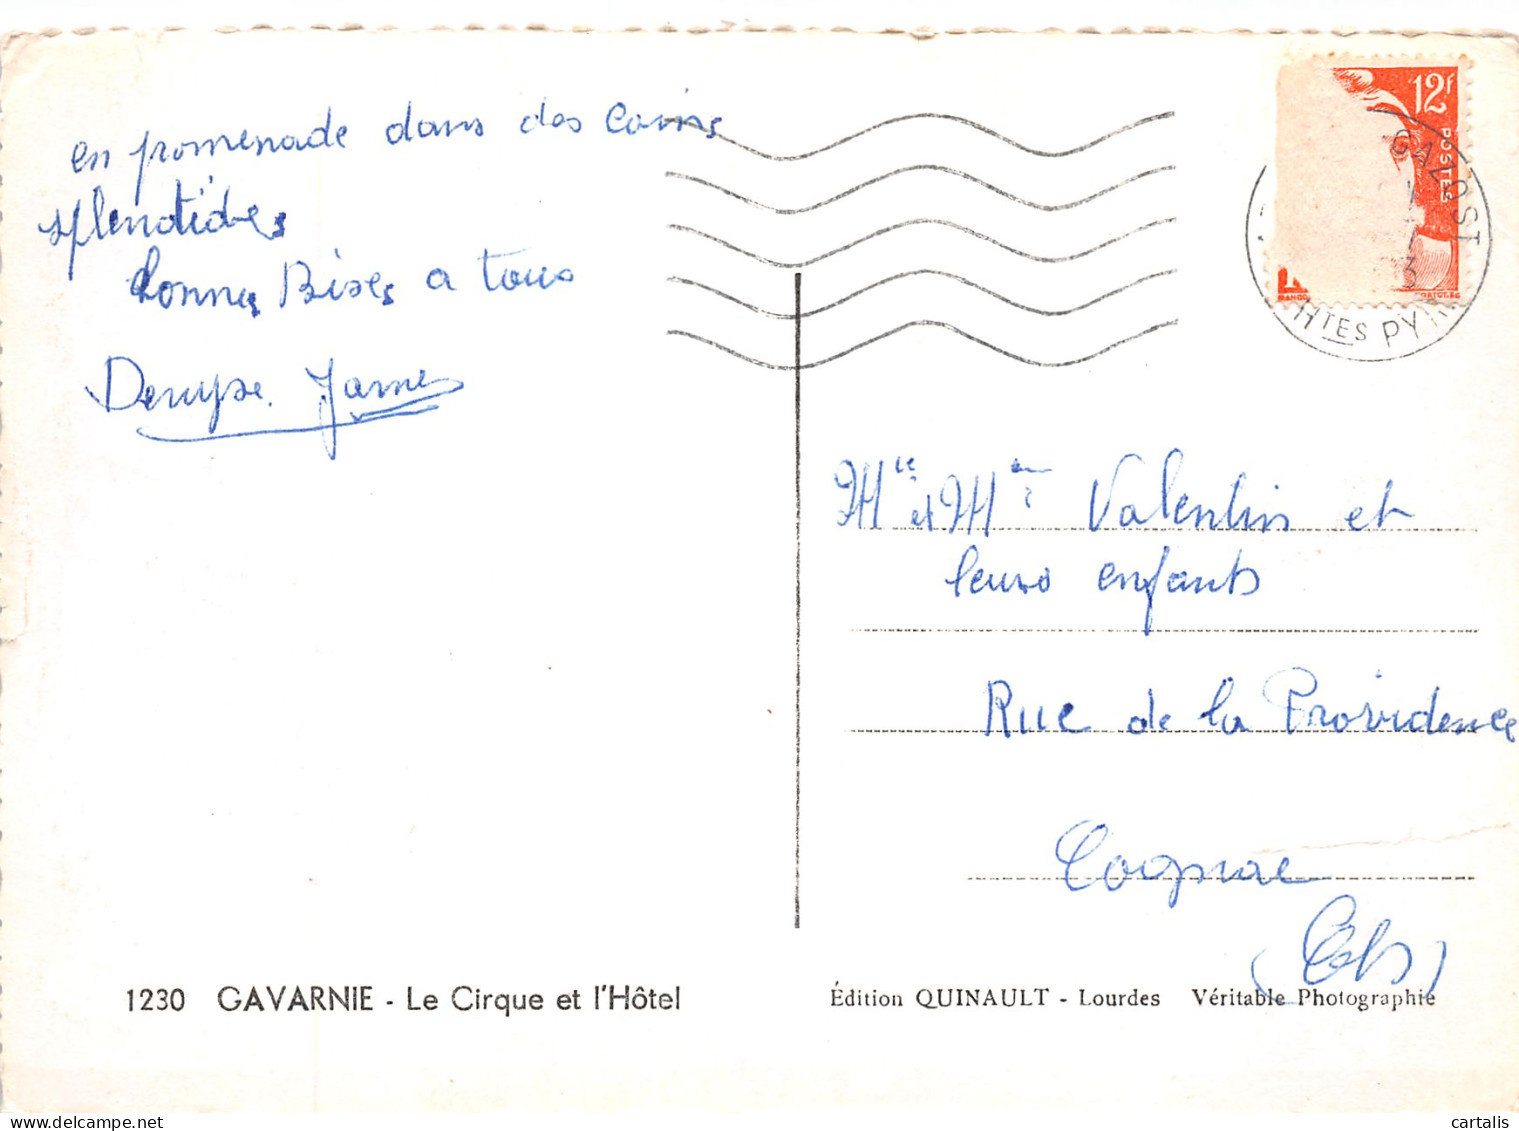 en promenade dans des coins
splendides
bonnes Bises a tous
Denyse. James
12f
POSTES
GAZOST
HTES PYR
Mr et Mme Valentin et
leurs enfants
Rue de la Providence
Cognac
(Ch)
1230 GAVARNIE - Le Cirque et l'Hôtel
Édition QUINAULT - Lourdes Véritable Photographie
cartalis